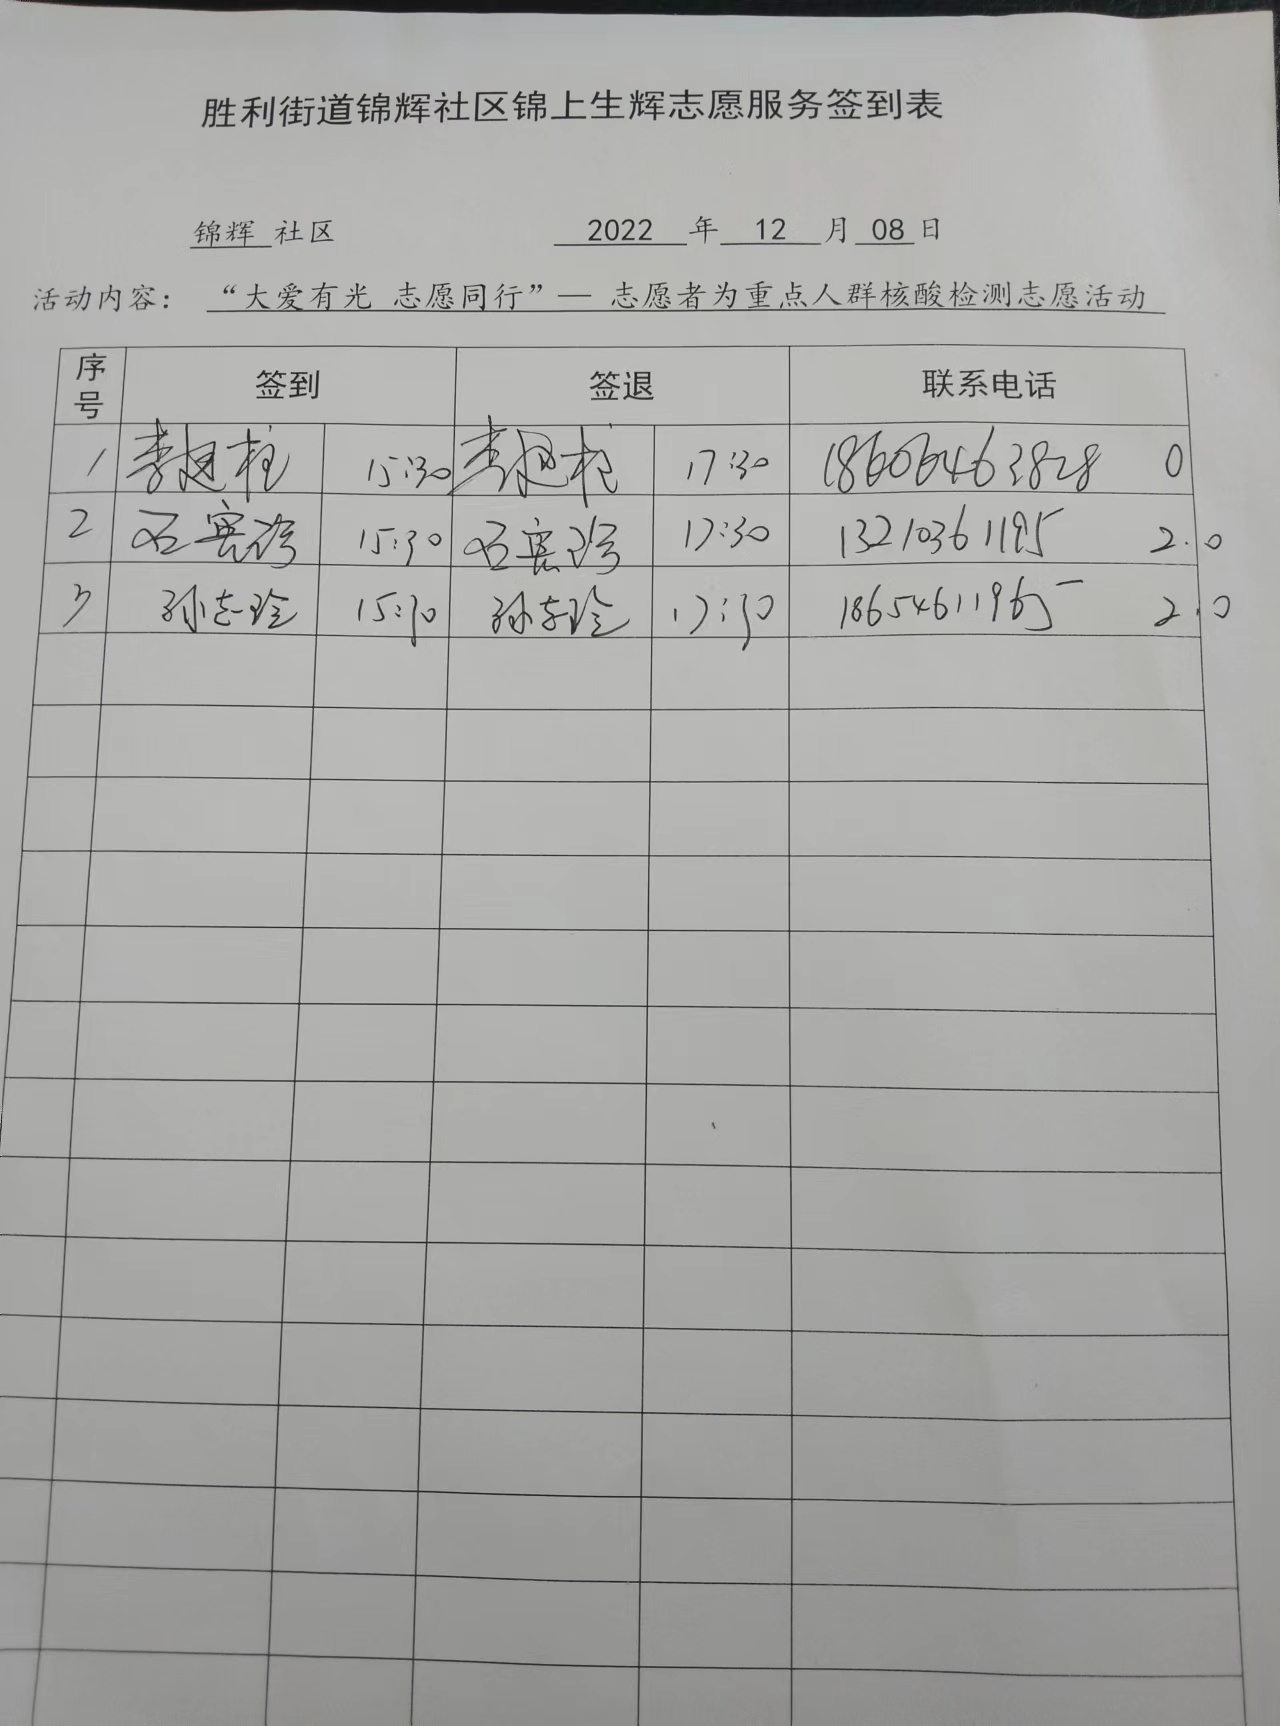 胜利街道锦辉社区锦上生辉志愿服务签到表
锦辉 社区 2022 年 12 月 08 日
活动内容： “大爱有光 志愿同行”— 志愿者为重点人群核酸检测志愿活动
序号 签到 签退 联系电话
1 李 柱 15:30 李 柱 17:30 18606463828 0
2 石 15:30 石 17:30 13210361195 2.0
3 孙志玲 15:30 孙志玲 17:30 18654611965 2.0